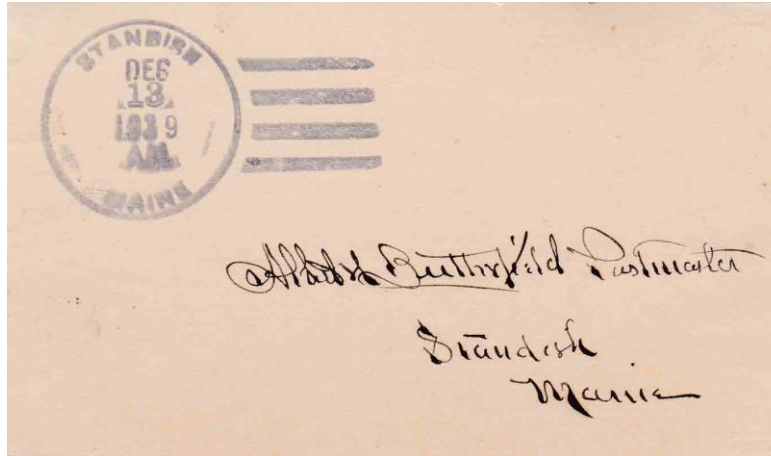 STANDISH
DEC
13
1939
AM
MAINE
Butterfield Postmaster
Standish
Maine